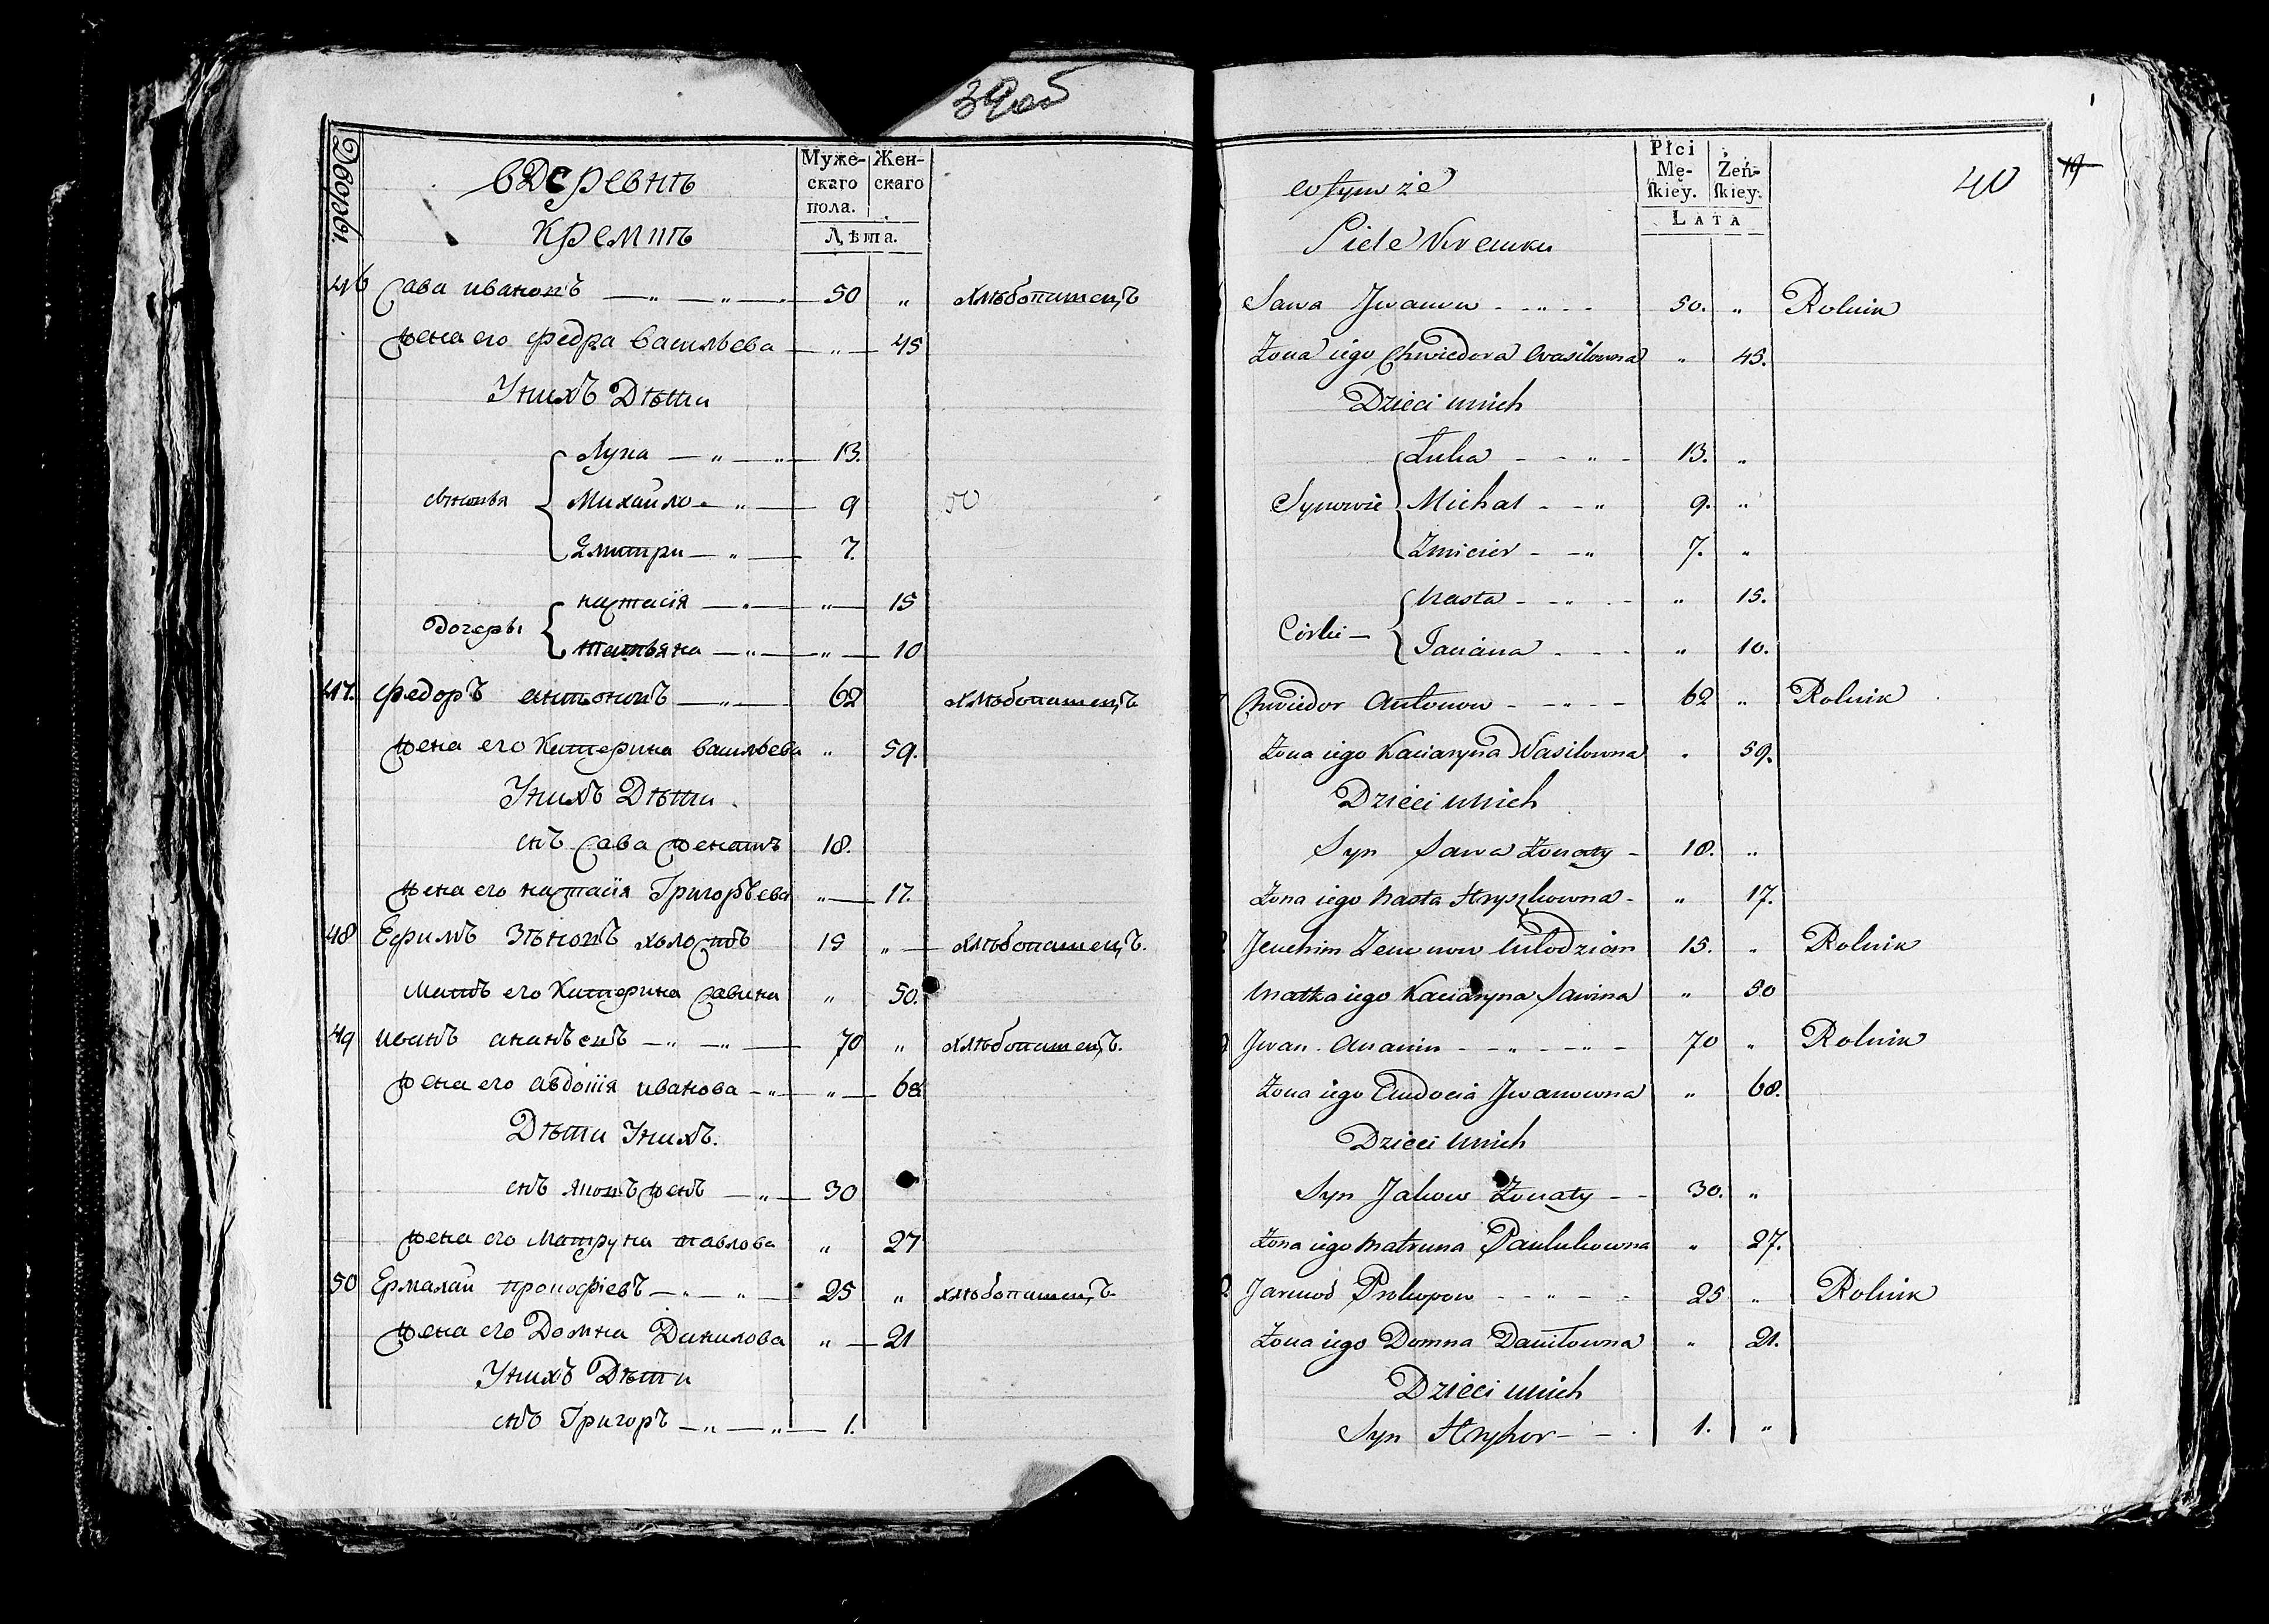 39об
Дворы.
вДеревнѣ
Муже-
скаго
пола.
Жен-
скаго
Лѣта.
46 Сава иванопъ 50 „ хлѣбопашецъ
жена его федра васильева „ 45
Унихъ Дѣти
Лука „ 13.
сыновья Михайло „ 9
Дмитри „ 7.
настасія „ 15
Дочеры
татьяна „ 10
47. федоръ антонопъ „ 62 хлѣбопашецъ
жена его Катерина васильева „ 59.
Унихъ Дѣти.
снъ Сава женатъ 18.
жена его настасія Григорьева „ 17.
48 Ефимъ 15 „ хлѣбопашецъ.
его Катерина савина „ 50.
49 иванъ 70 „ хлѣбопашецъ.
жена его авдоція иванова „ 68
Дѣти Унихъ.
снъ 30
жена его Матруна павлова „ 27
50 Ермалай прокофіевъ 25 „ хлѣбопашецъ.
жена его Домна Данилова „ 21
Унихъ Дѣти
снъ Григоръ „ 1.
40
19
w tymże
Płci
Mę-
ſkiey.
Żeń-
ſkiey.
LATA
Siele
Sawa Jwanow „ 50. „ Rolnik
Żona iego Chwiedora Wasilowna „ 45.
Dzieci unich
Łuka „ 13. „
Synowie Michał „ 9. „
Zmicier „ 7. „
Nasta „ 15.
Córki
Taciana „ 10.
Chwiedor Antonow „ 62 „ Rolnik
Żona iego Kacianyna Wasilowna „ 59.
Dzieci unich
Syn Sawa Żonaty 18. „
Żona iego Nasta Hryszkowna „ 17.
Jeuchim Młodzian 15. „ Rolnik
Matka iego Kacianyna Sawina „ 50
Jwan Ananin „ 70 „ Rolnik
Żona iego Eudocia Jwanowna „ 68.
Dzieci Unich
Syn Jakow Żonaty 30. „
Żona iego Matruna Pawlukowna „ 27.
Prokopow „ 25 „ Rolnik
Żona iego Domna Daniłowna „ 21.
Dzieci unich
Syn Hryhor 1. „